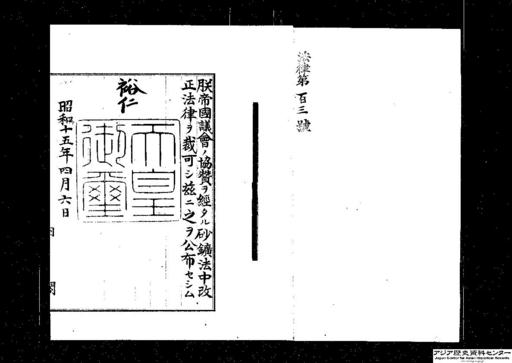 法律第百三號
朕帝國議會ノ協贊ヲ經タル砂鑛法中改
正法律ヲ裁可シ茲ニ之ヲ公布セシム
裕仁
天皇
御璽
昭和十五年四月六日
内閣
アジア歴史資料センター
Japan Center for Asian Historical Records